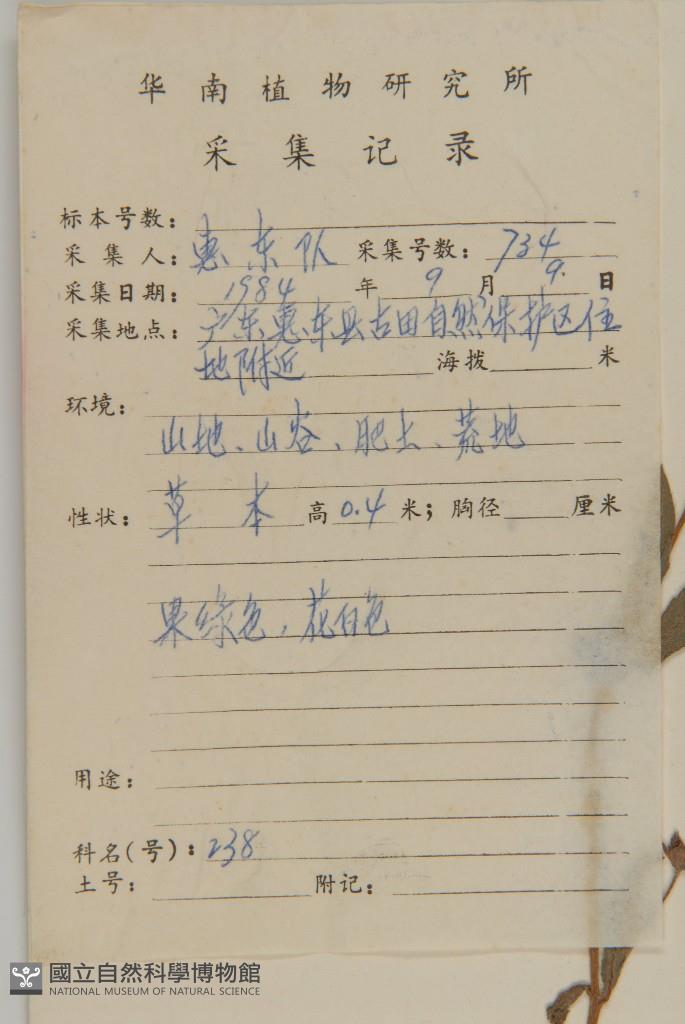 华南植物研究所
采集记录
标本号数：
采集人：惠东队 采集号数：734
采集日期：1984年9月9日
采集地点：广东惠东县古田自然保护区住
地附近 海拨 米
环境：
山地、山谷、肥土、荒地
性状：草本 高0.4米；胸径 厘米
果绿色，花白色
用途：
科名(号)：238
土号： 附记：
國立自然科學博物館
NATIONAL MUSEUM OF NATURAL SCIENCE